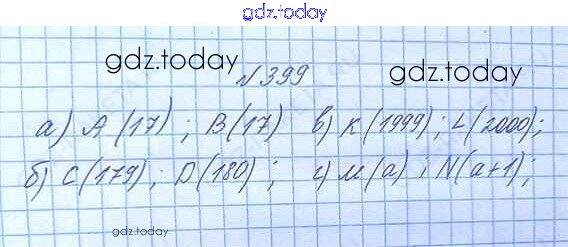 gdz.today
gdz.today gdz.today
№399
а) A(17); B(17) в) K(1999); L(2000);
б) C(179); D(180); г) M(a); N(a+1);
gdz.today